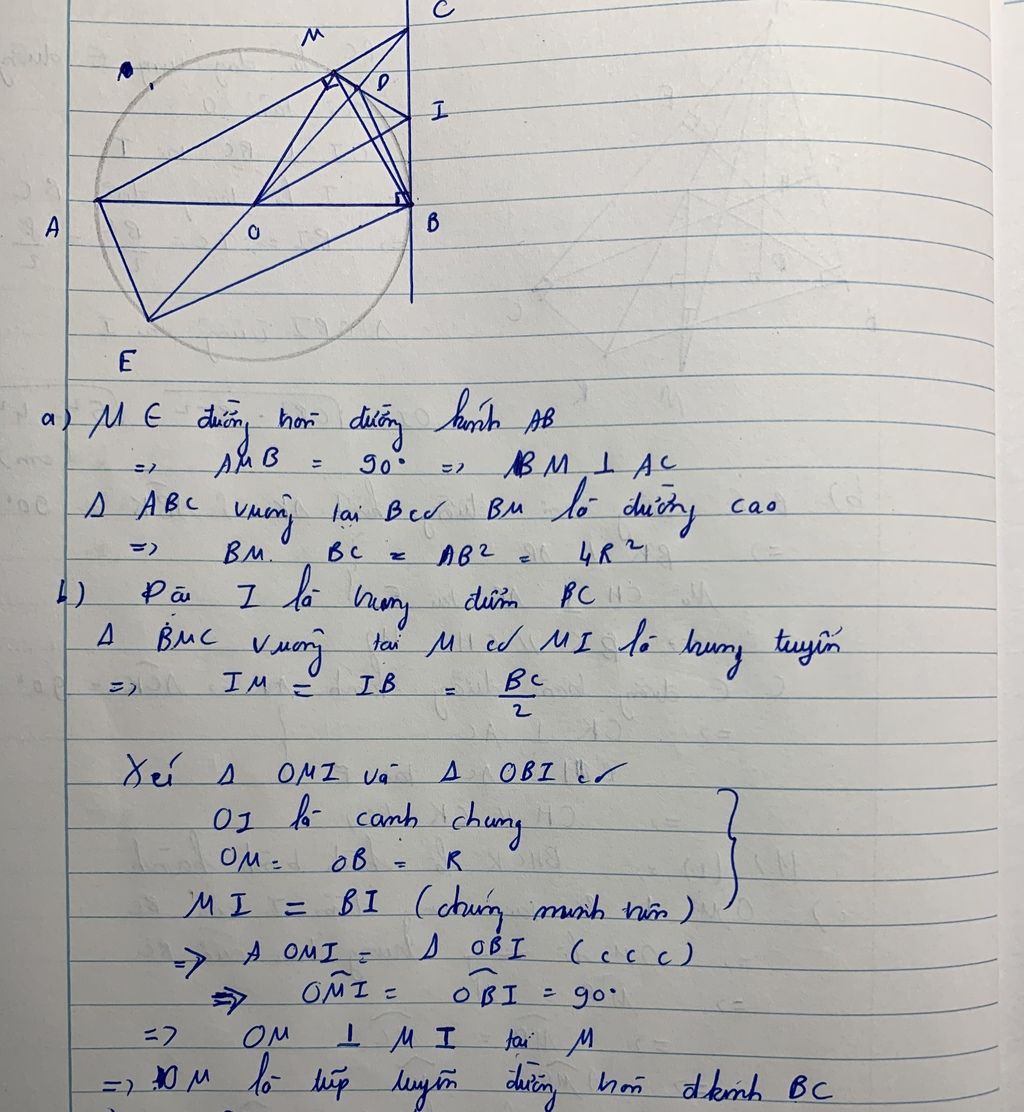 C
M
D
I
A
O
B
E
a) M ∈ đường tròn đường kính AB
=> AMB = 90° => BM ⊥ AC
Δ ABC vuông tại B có BM là đường cao
=> BM. BC = AB² = 4R²
b) I là trung điểm BC
Δ BMC vuông tại M có MI là trung tuyến
=> IM = IB = BC/2
Xét Δ OMI và Δ OBI có
OI là cạnh chung
OM = OB = R
MI = BI (chứng minh trên)
=> Δ OMI = Δ OBI (c c c)
=> OMI = OBI = 90°
=> OM ⊥ MI tại M
=> OM là tiếp tuyến đường tròn đkính BC